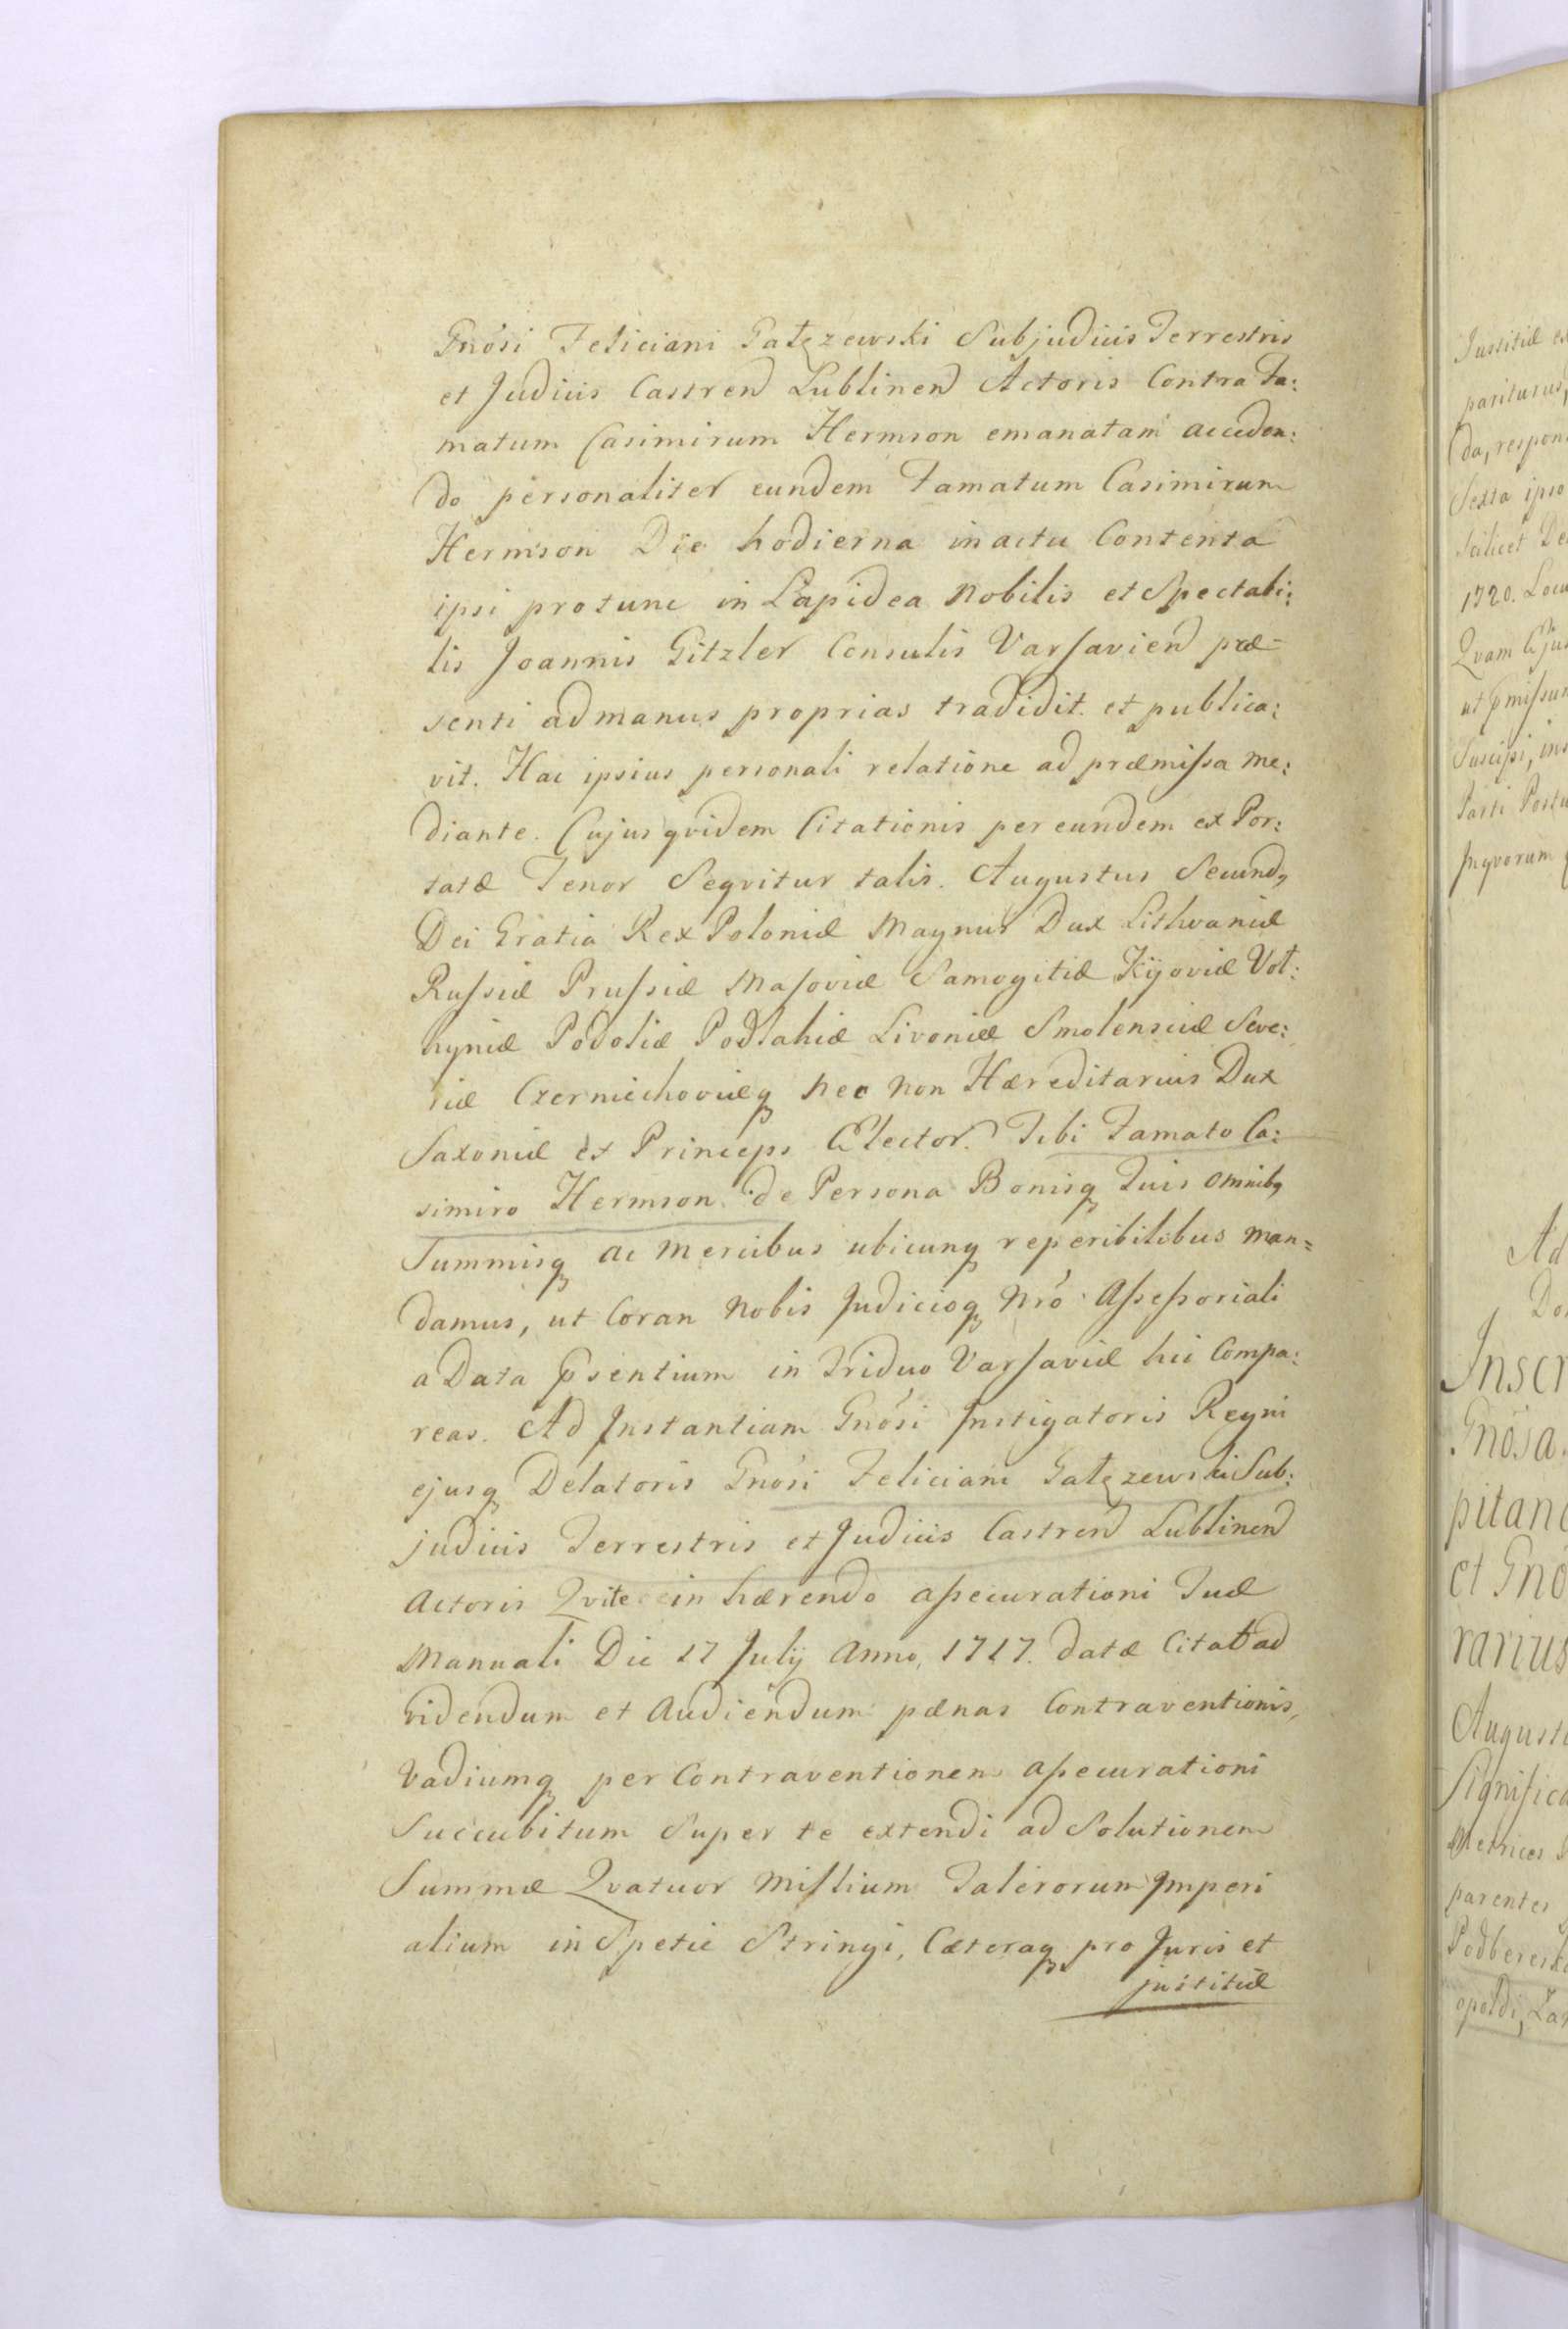 Gnosi Feliciani Gałęzewski Subjudicis Terrestris
et Judicis Castren Lublinen Actoris Contra Fa:
matum Casimirum Hermson emanatam acceden:
do personaliter eundem Famatum Casimirum
Hermson Die hodierna in actu Contenta
ipsi protunc in Lapidea Nobilis et Spectabi:
lis Joannis Gitzler Consulis Varsavien præ-
senti ad manus proprias tradidit et publica:
vit. Hac ipsius personali relatione ad præmissa me:
diante. Cujus qvidem Citationis per eundem ex Por:
tatæ Tenor Seqvitur talis. Augustus Secundq
Dei Gratia Rex Poloniæ Magnus Dux Lithvaniæ
Russiæ Prussiæ Masoviæ Samogitiæ Kijoviæ Vol:
hyniæ Podoliæ Podlahiæ Livoniæ Smolensciæ Seve:
riæ Czerniechoviæq nec non Hæreditarius Dux
Saxoniæ et Princeps Elector. Tibi Famato Ca:
simiro Hermson de Persona Bonisq Tuis omnibq
Summisq ac Mercibus ubicunq reperibilibus man=
damus, ut Coram Nobis Judicioq Nro Assessoriali
a Data Psentium in Triduo Varsaviæ hic Compa:
reas. Ad Instantiam Gnosi Instigatoris Regni
ejusq Delatoris Gnosi Feliciani Gałęzewski Sub:
judicis Terrestris et Judicis Castren Lublinen
Actoris Qvi te in hærendo assecurationi Tuæ
Manuali Die 17 July Anno, 1717. datæ Citat ad
Videndum et Audiendum pænas Contraventionis,
Vadiumq per Contraventionem assecurationi
Succubitum Super te extendi ad Solutionem
Summæ Qvatuor Millium Talerorum Imperi
alium in Spetie Stringi, Cæteraq pro Juris et
justitiæ
Justitiæ
pariturus,
da,
Sexta ipso
Scilicet
1720.
Qvam
Suscipi,
Parti
Inqvorum
Ad
Gnosa
et Gno
rarius
parentes